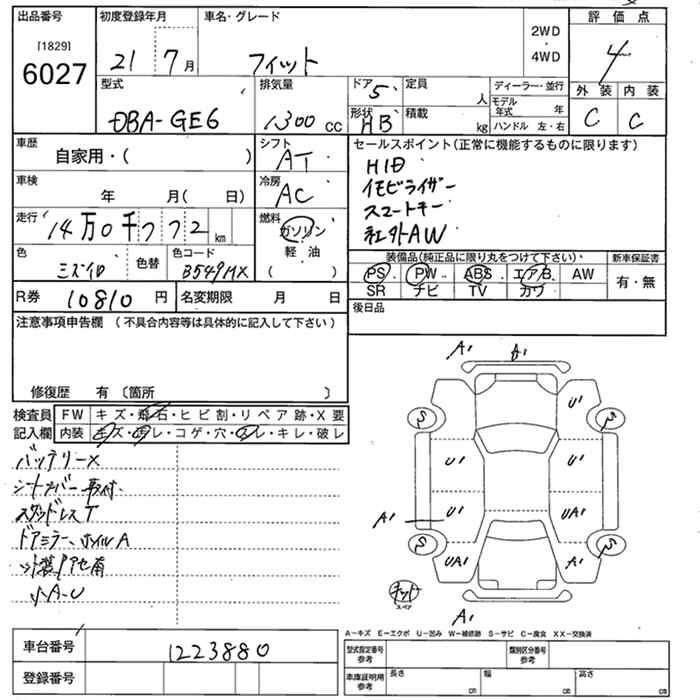 出品番号 初度登録年月 車名・グレード 2WD・4WD 評価点
[1829]
6027 21 7月 フィット 4
型式 排気量 ドア 5 定員 人 ディーラー・並行 外装 内装
DBA-GE6 1300cc 形状 HB 積載 kg モデル年式 年 ハンドル 左・右 C C
車歴 シフト セールスポイント(正常に機能するものに限ります)
自家用・( ) AT HID
車検 冷房 イモビライザー
年 月( 日) AC スマートキー
走行 14万0千772km 燃料 ガソリン 社外AW
軽油
( )
色 色替 色コード 装備品(純正品に限り丸をつけて下さい) 新車保証書
ミズイロ B549MX PS PW ABS エアB AW 有・無
SR ナビ TV カワ
R券 10810円 名変期限 月 日 後日品
注意事項申告欄(不具合内容等は具体的に記入して下さい)
修復歴 有 〔箇所 〕
検査員 FW キズ・飛石・ヒビ割・リペア跡・X要
記入欄 内装 キズ・汚レ・コゲ・穴・スレ・キレ・破レ
バッテリーX
シートカバー取付
スタッドレスT
ドアミラー、ホイルA
小A-U
A1 A1
U1
S S
U1 U1
A1 U1 UA1
S S
UA1 A1
スペア
A1
A-キズ E-エクボ U-凹み W-補修跡 S-サビ C-腐食 XX-交換済
車台番号 1223880 型式指定番号 参考 類別区分番号 参考
登録番号 車庫証明用 参考 長さ cm 幅 cm 高さ cm